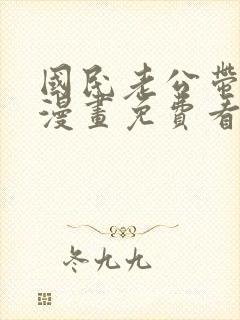 國民老公帶
漫畫免費看
冬九九